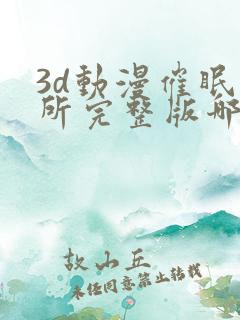 3d動漫催眠
所完整版那
故山丘
未经同意禁止转载